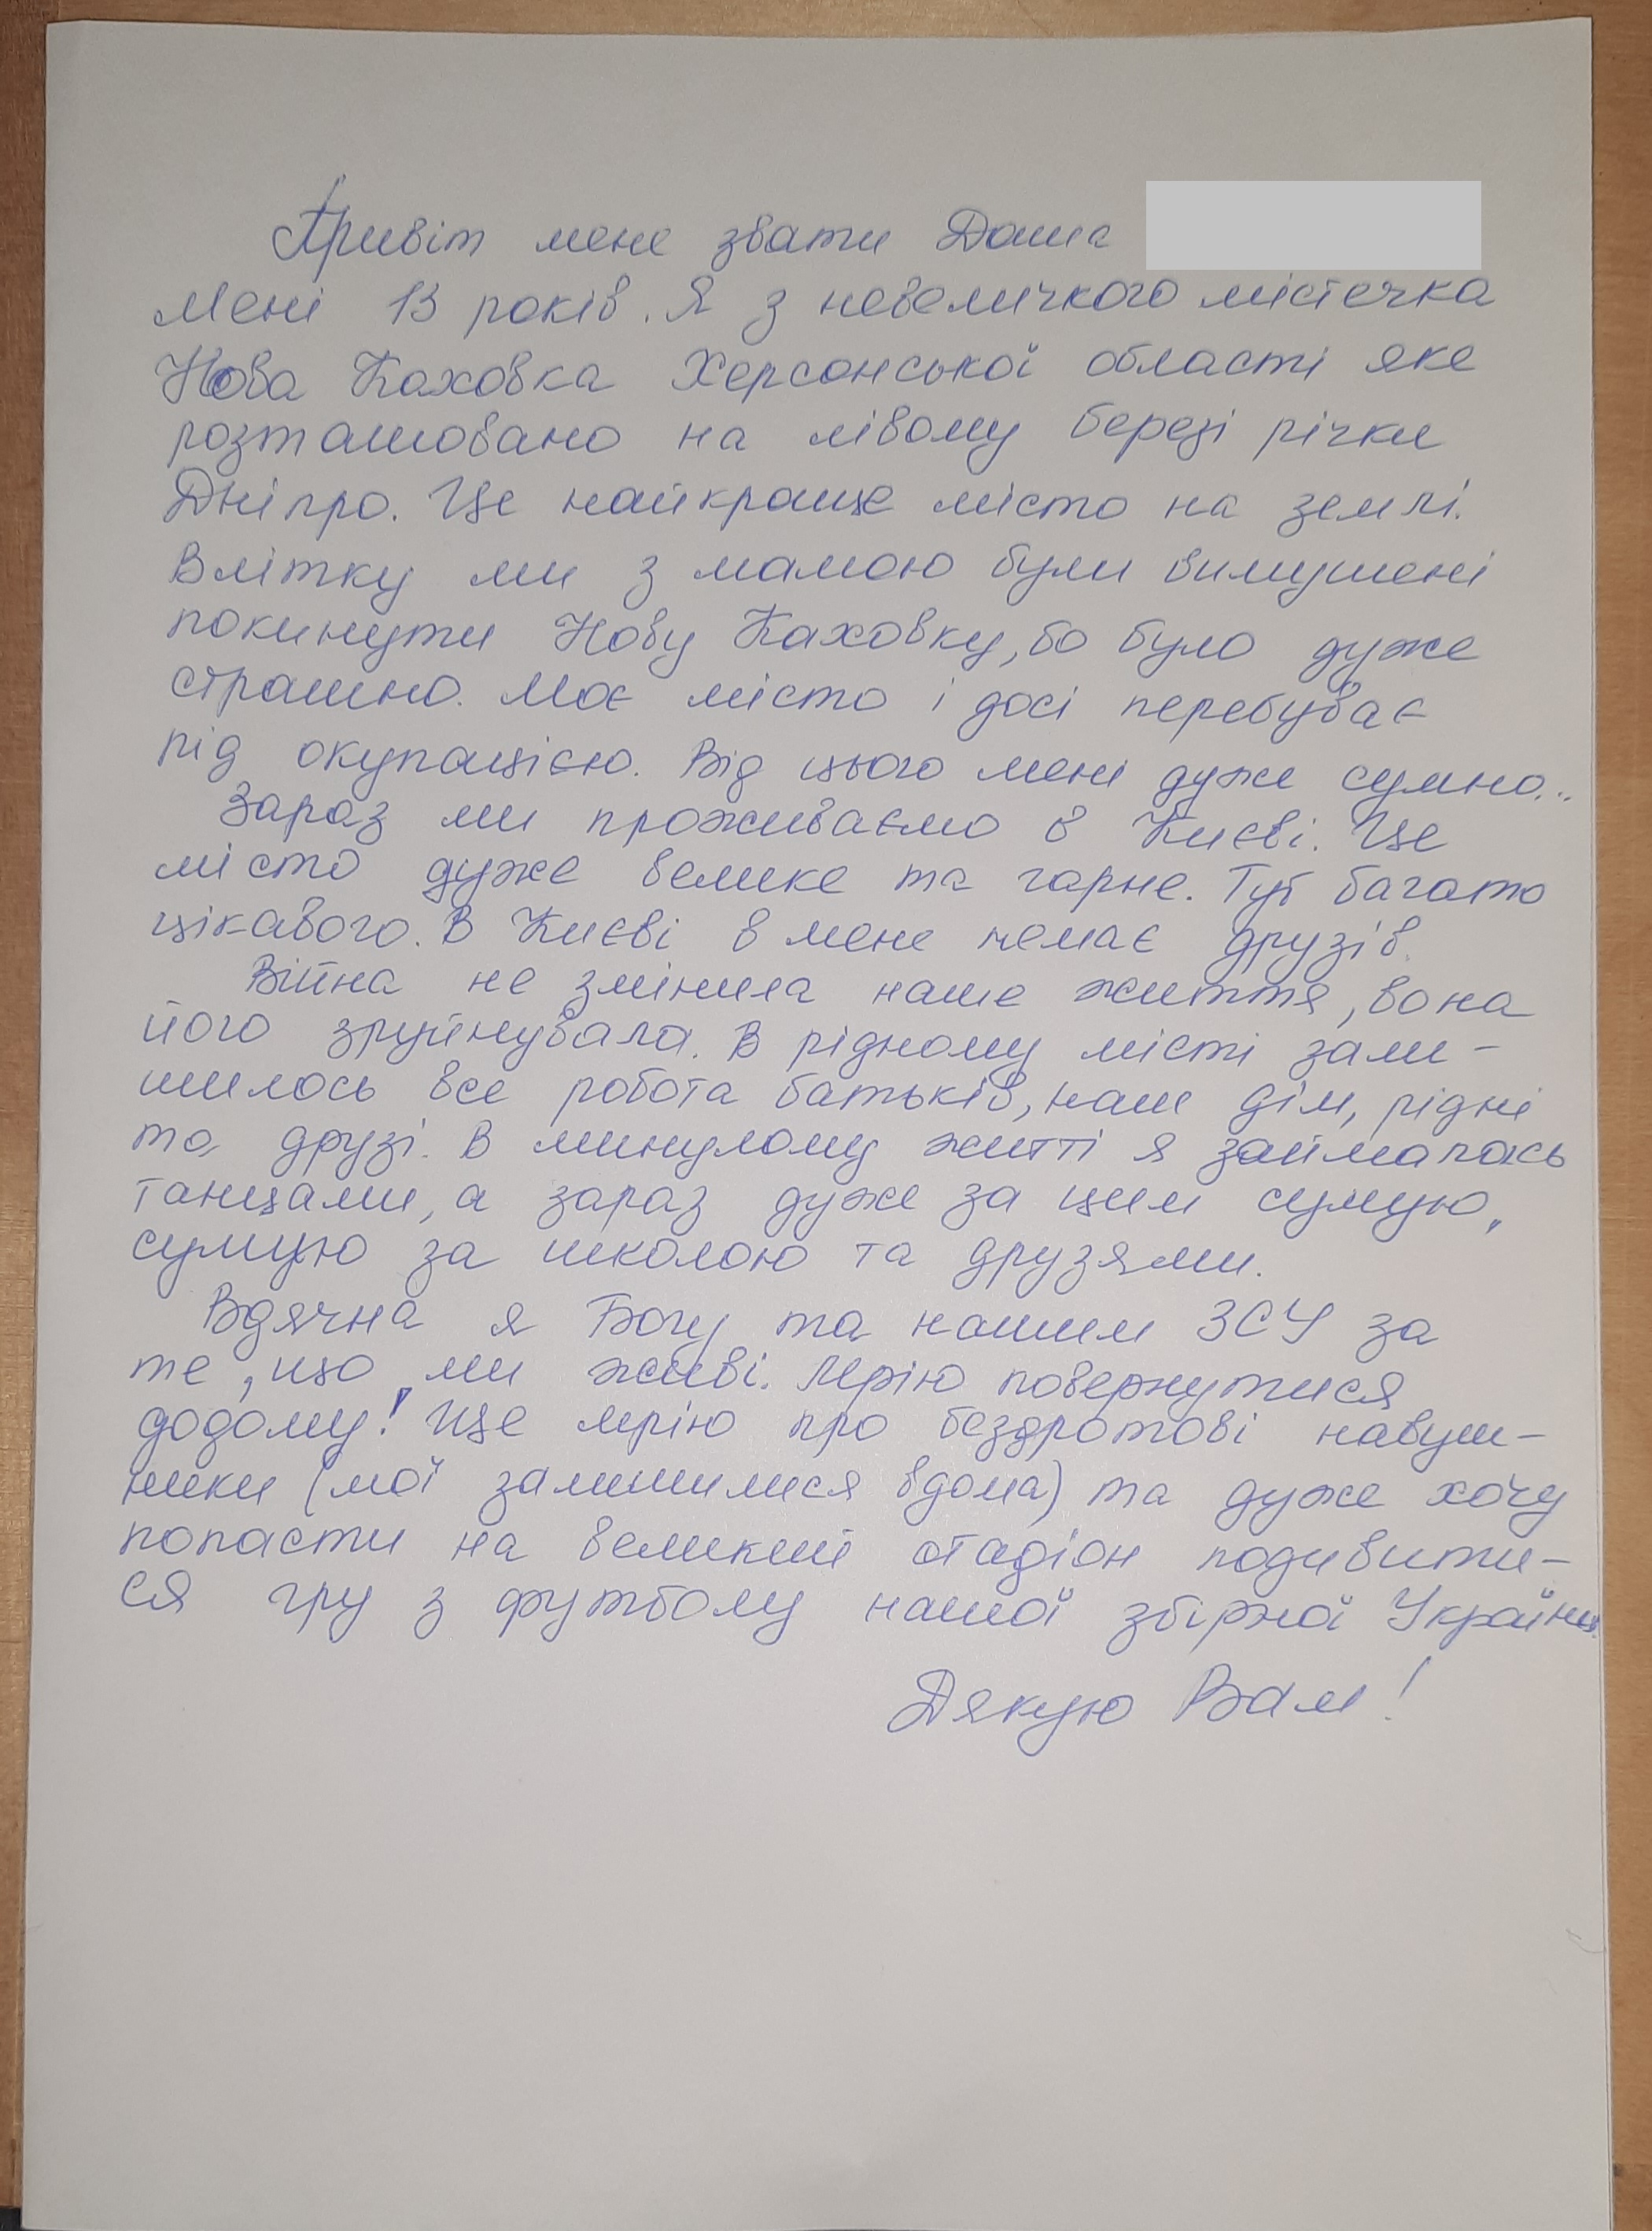 Привіт мене звати Даша
Мені 13 років. Я з невеличкого містечка
Нова Каховка Херсонської області яке
розташовано на лівому березі річки
Дніпро. Це найкраще місто на землі.
Влітку ми з мамою були вимушені
покинути Нову Каховку, бо було дуже
страшно. Моє місто і досі перебуває
під окупацією. Від цього мені дуже сумно...
Зараз ми проживаємо в Києві. Це
місто дуже велике та гарне. Тут багато
цікавого. В Києві в мене немає друзів.
Війна не змінила наше життя, вона
його зруйнувала. В рідному місті зали-
шилось все робота батьків, наш дім, рідні
та друзі. В минулому житті я займалась
танцами, а зараз дуже за цим сумую,
сумую за школою та друзями.
Вдячна я Богу та нашим ЗСУ за
те, що ми живі. Мрію повернутися
додому! Ще мрію про бездротові навуш-
ники (мої залишилися вдома) та дуже хочу
попасти на великий стадіон подивити-
ся гру з футболу нашої збірної України.
Дякую Вам!